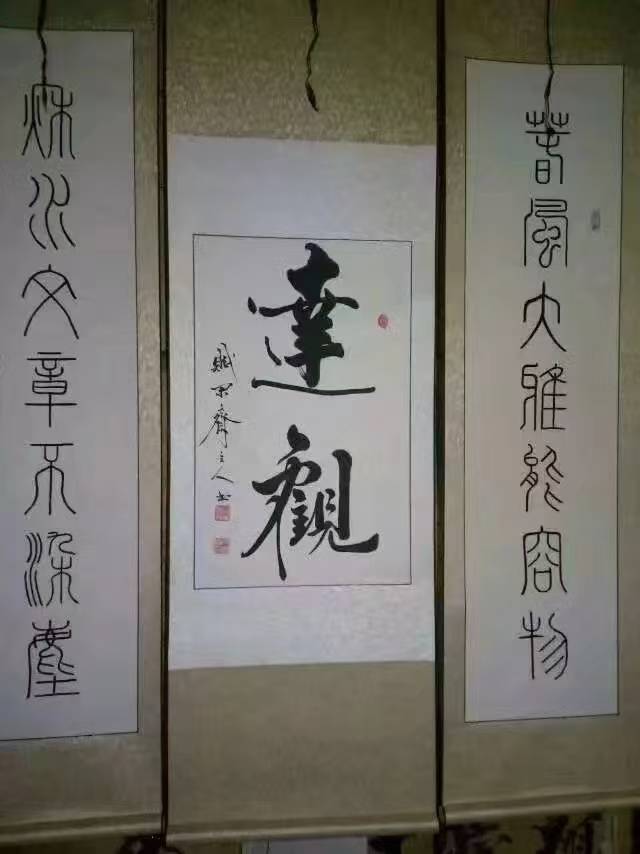 春風大雅能容物
達觀
齋主人書
秋水文章不染塵